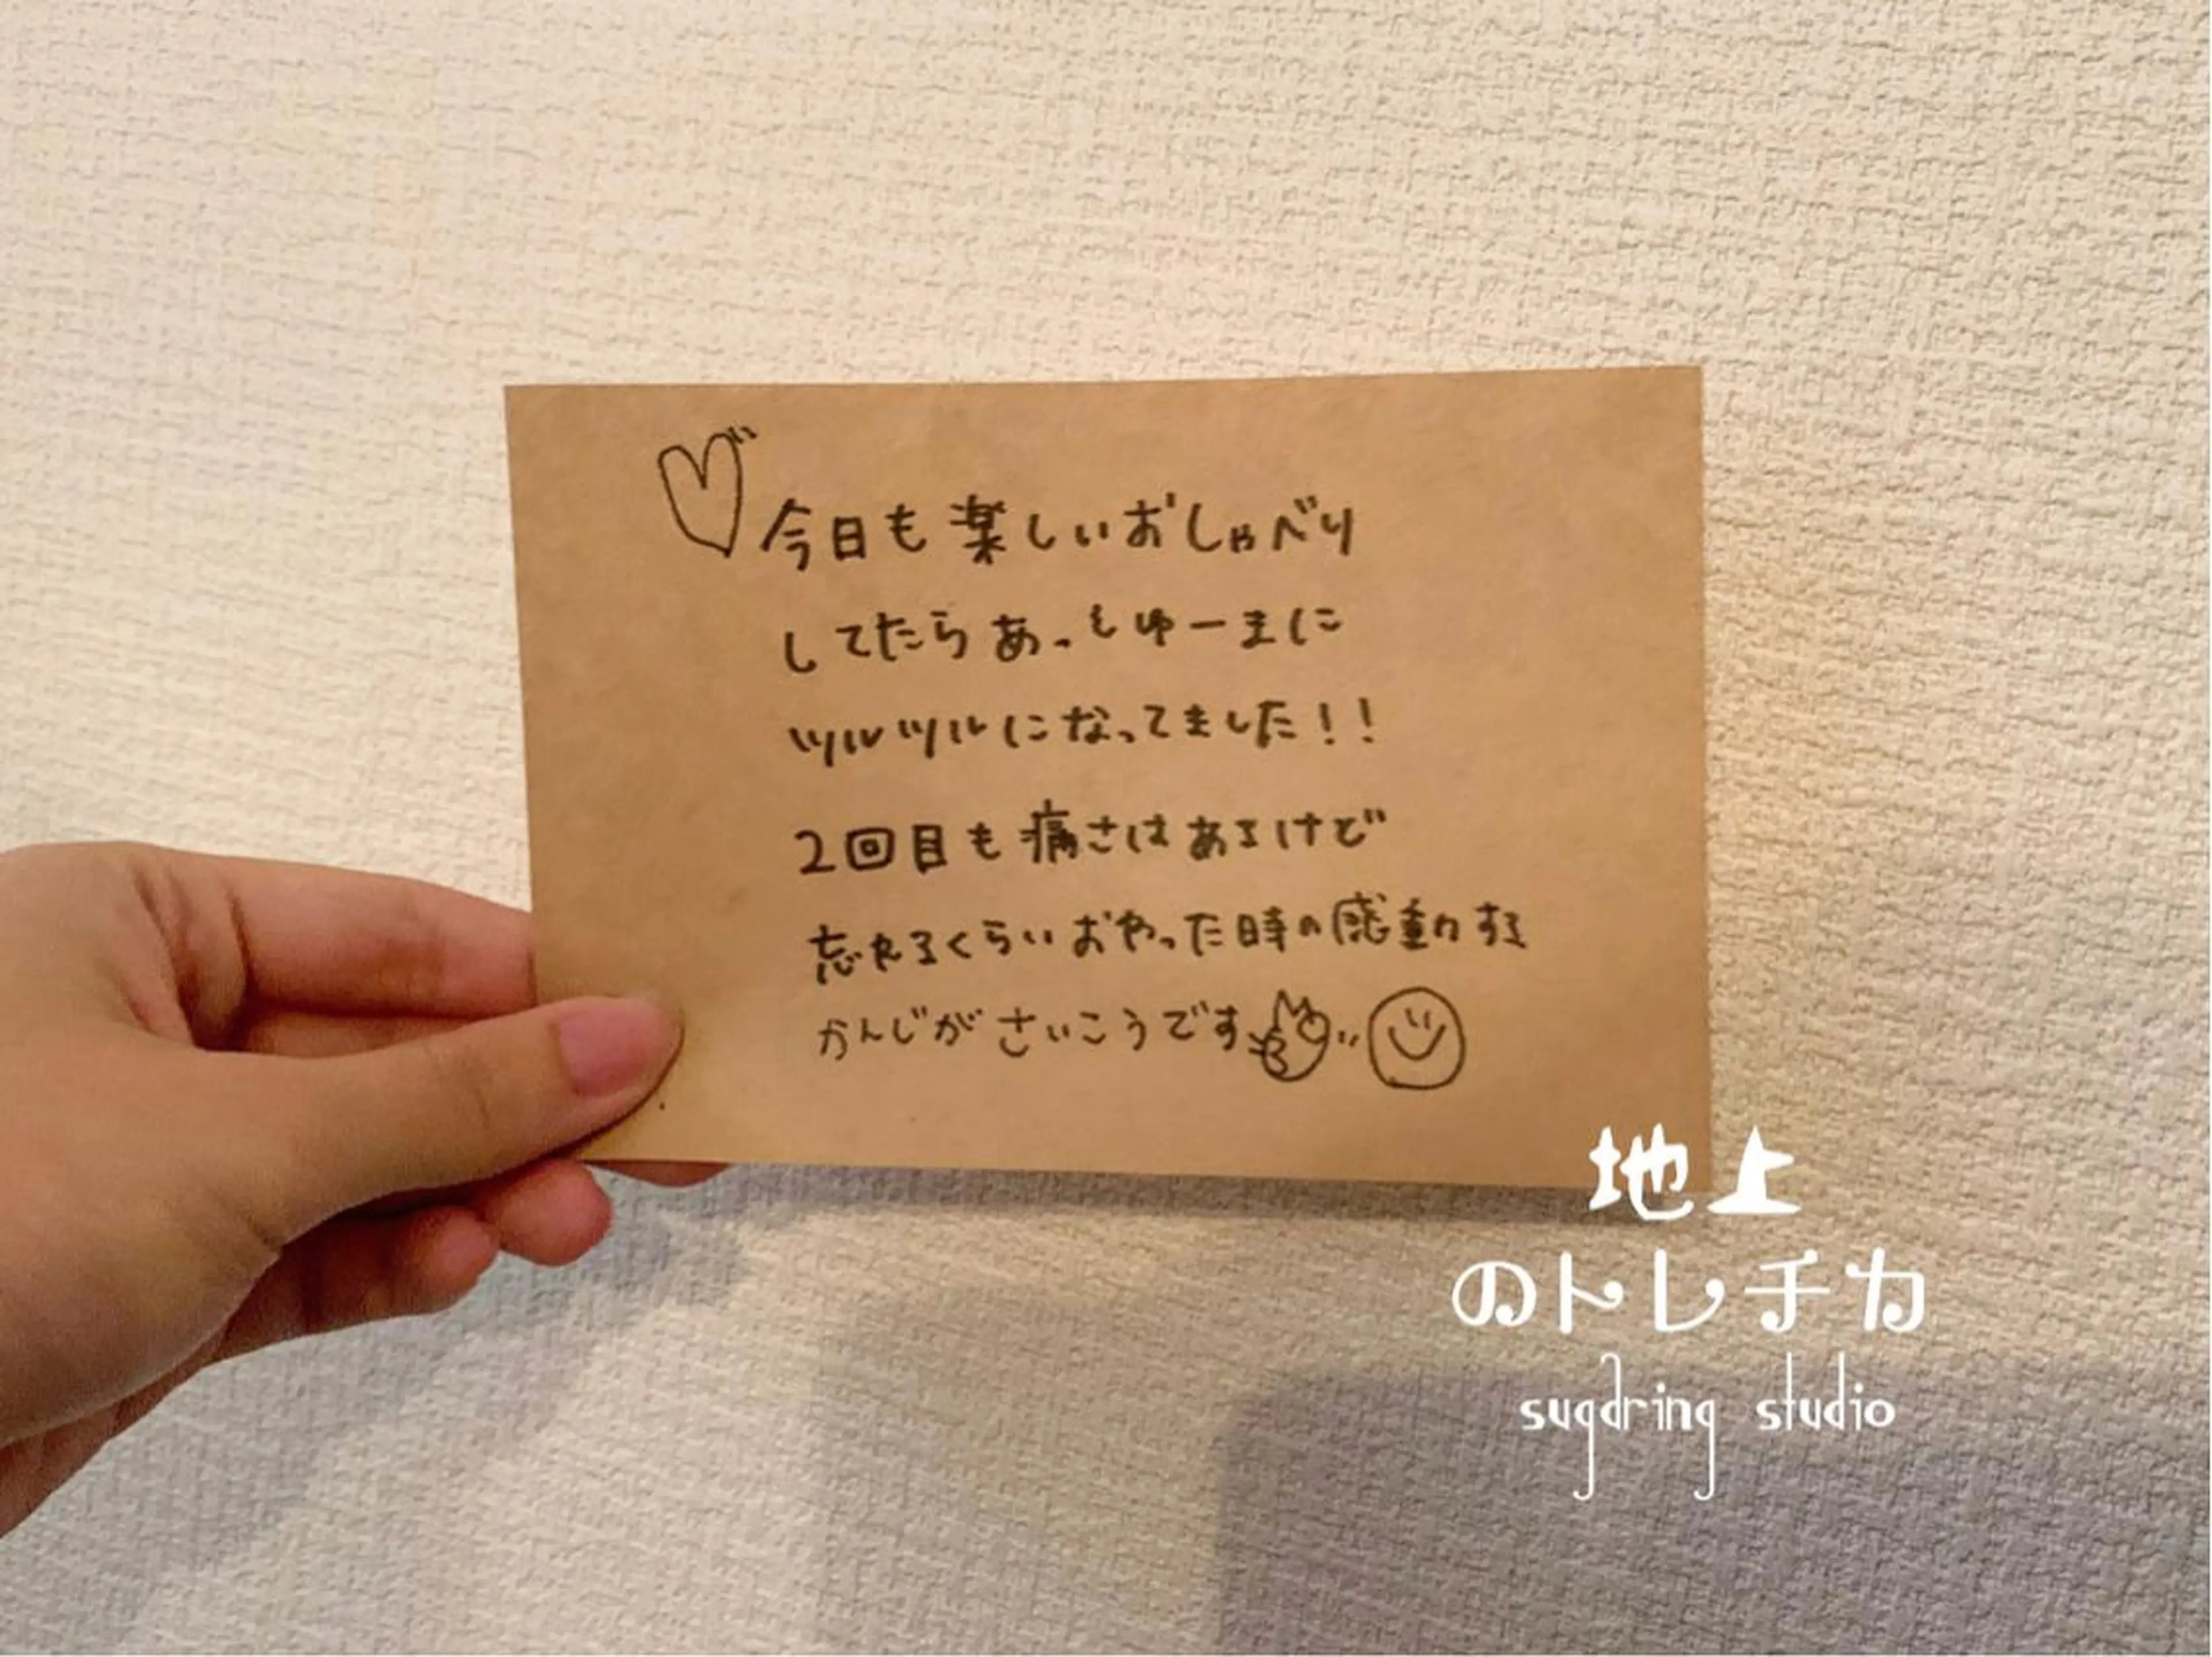 今日も楽しいおしゃべり
してたらあっとゆーまに
ツルツルになってました!!
2回目も痛さはあるけど
忘れるくらいおわった時の感動する
かんじがさいこうです
地上
のトレチカ
sugaring studio